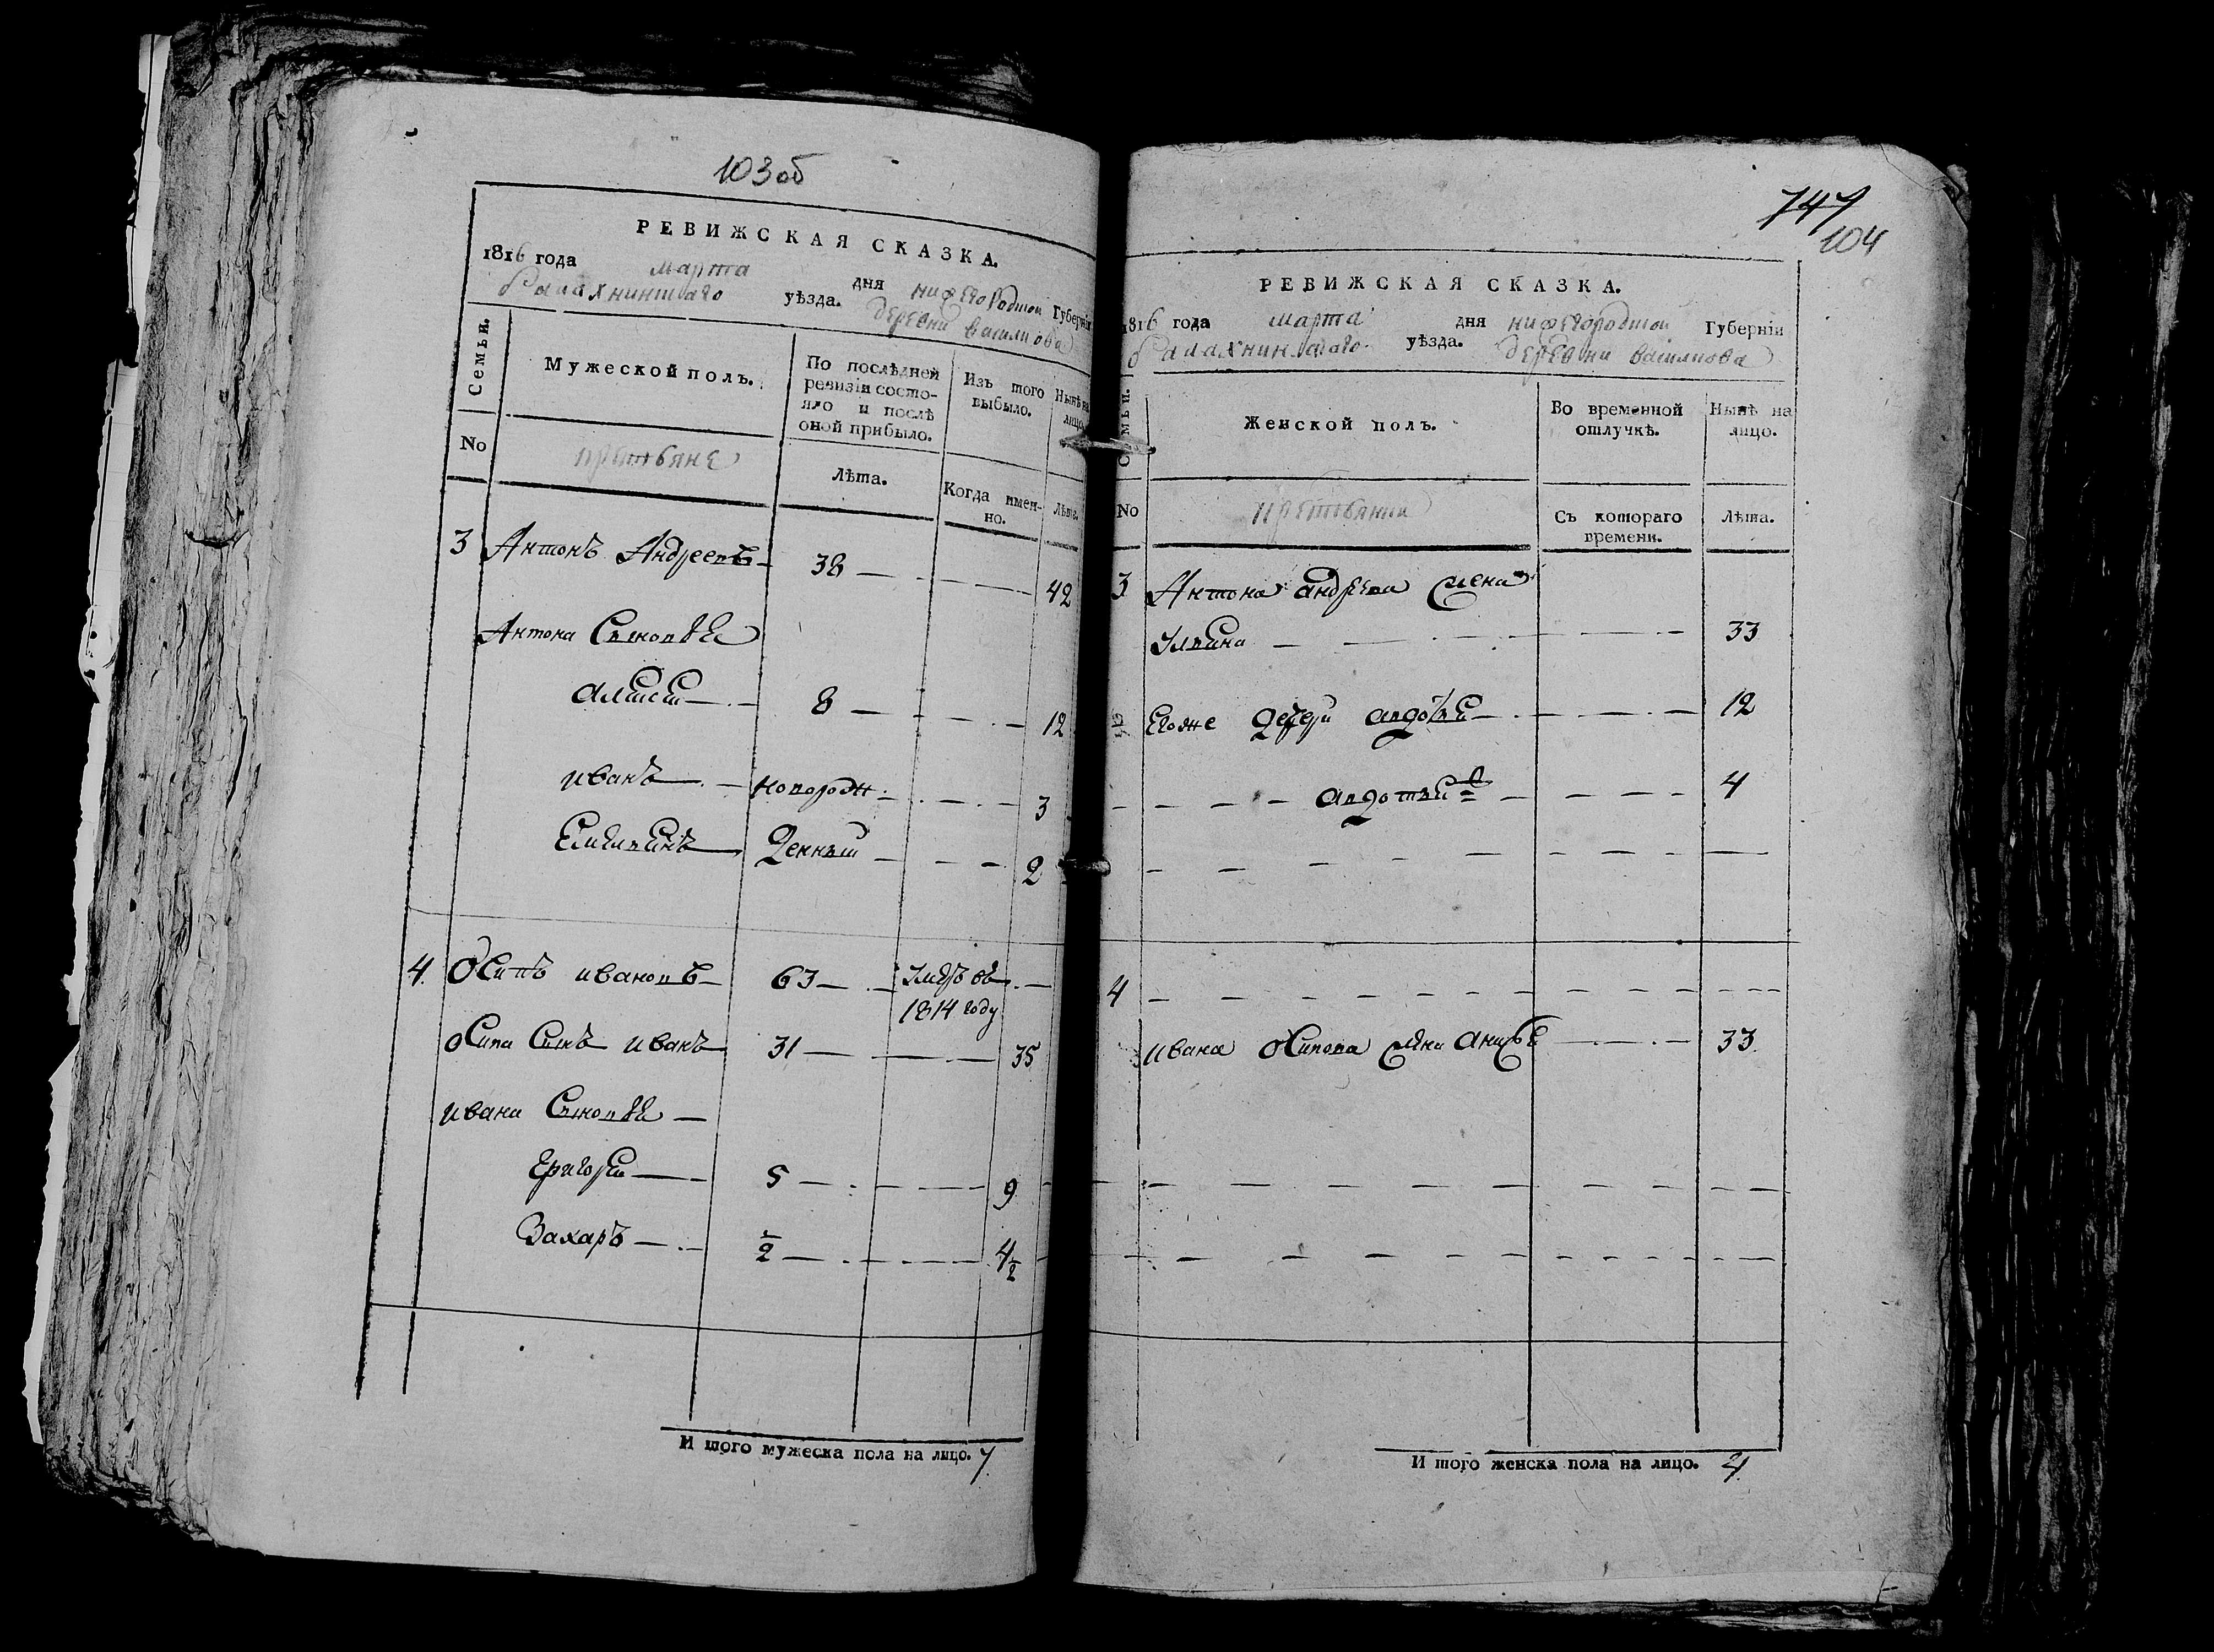 103 об
РЕВИЖСКАЯ СКАЗКА.
1816 года марта дня нижегородской Губерніи
балахнинскаго уѣзда. деревни василкова
Семьи.
Мужеской полъ.
По послѣдней ревизіи состояло и послѣ оной прибыло.
Изъ того выбыло.
Нынѣ на лицо.
No
крестьяне
Лѣта.
Когда именно.
Лѣта.
3 Антонъ Андреевъ 38 42
Антона Сыновья
Алексѣй 8 12
иванъ новорож 3
денные 2
4. Осипъ ивановъ 63 Умеръ въ 1814 году
осипа Сынъ иванъ 31 35
ивана Сыновья
Григорей 5 9
Захаръ ½ 4½
И того мужеска пола на лицо. 7
747
104
РЕВИЖСКАЯ СКАЗКА.
1816 года марта дня нижегородской Губерніи
балахнинскаго уѣзда. деревни василкова
Семьи.
Женской полъ.
Во временной отлучкѣ.
Нынѣ на лицо.
No
крестьянки
Съ котораго времени.
Лѣта.
3 Антона андреева жена
Ульяна 33
Егоже дочери авдотья 12
авдотья 4
4
ивана осипова жена анисья 33
И того женска пола на лицо. 4.